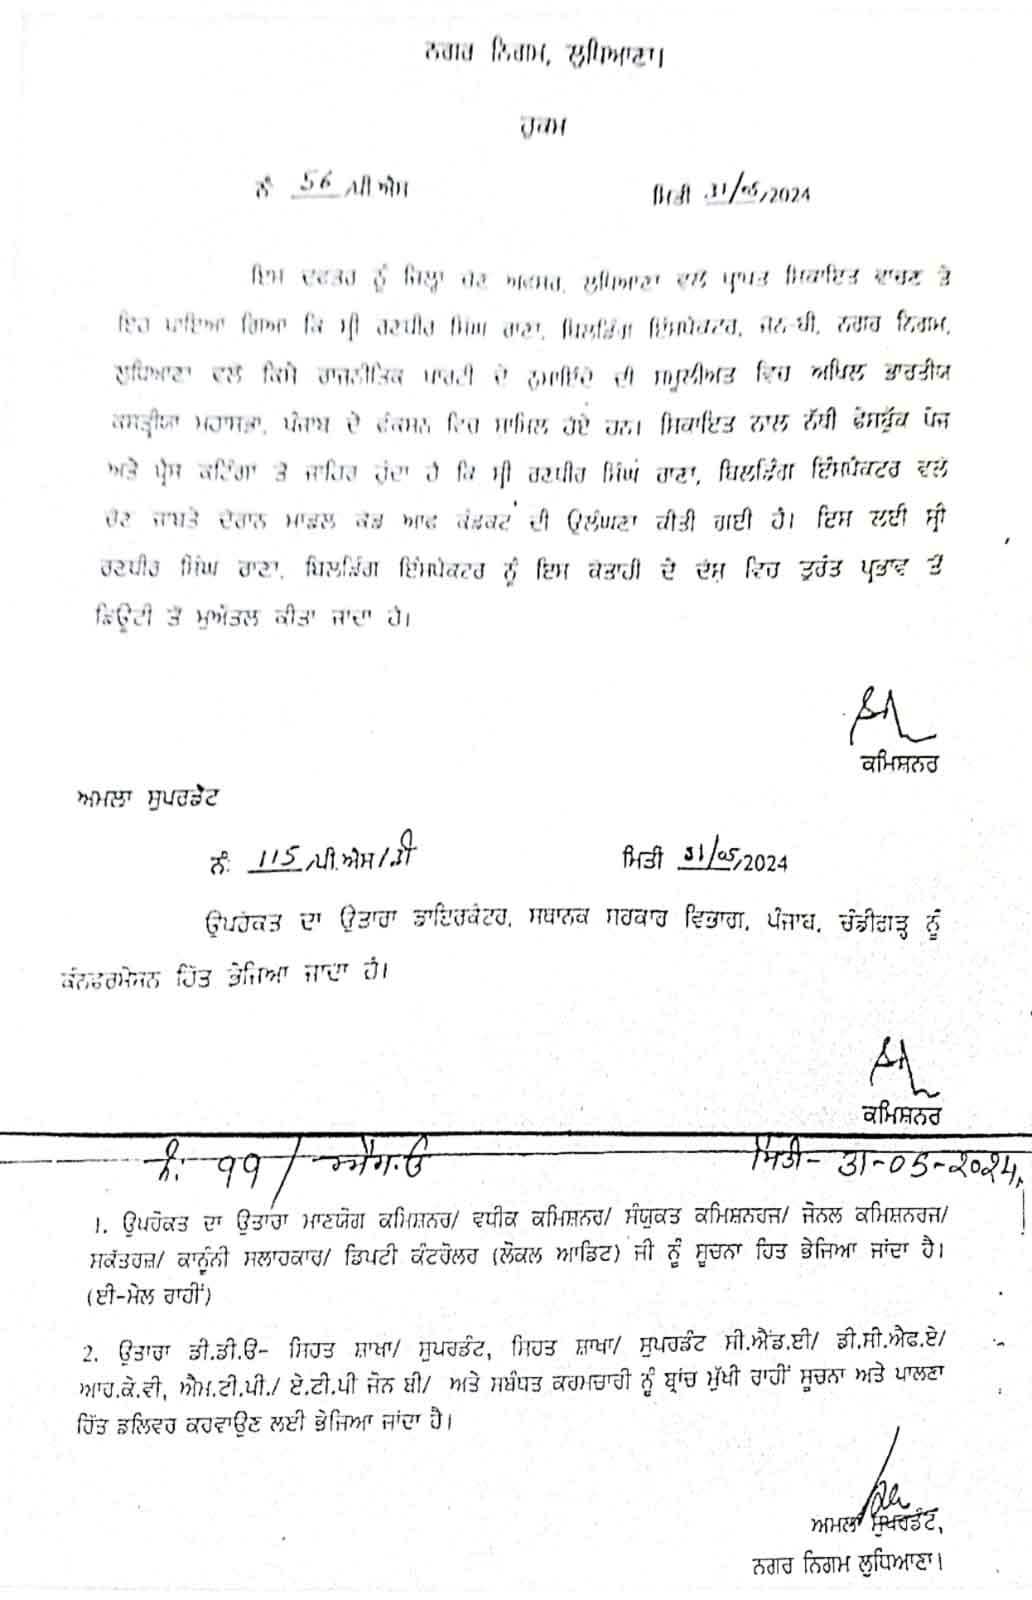 ਨਗਰ ਨਿਗਮ, ਲੁਧਿਆਣਾ।
ਹੁਕਮ
ਨੰ 56 /ਪੀ.ਐਸ ਮਿਤੀ 31/05/2024
ਇਸ ਦਫਤਰ ਨੂੰ ਜਿਲ੍ਹਾ ਚੋਣ ਅਫਸਰ, ਲੁਧਿਆਣਾ ਵਲੋਂ ਪ੍ਰਾਪਤ ਸ਼ਿਕਾਇਤ ਵਾਚਣ ਤੇ
ਇਹ ਪਾਇਆ ਗਿਆ ਕਿ ਸ੍ਰੀ ਰਣਧੀਰ ਸਿੰਘ ਰਾਣਾ, ਬਿਲਡਿੰਗ ਇੰਸਪੈਕਟਰ, ਜੋਨ-ਬੀ, ਨਗਰ ਨਿਗਮ,
ਲੁਧਿਆਣਾ ਵਲੋਂ ਕਿਸੇ ਰਾਜਨੀਤਿਕ ਪਾਰਟੀ ਦੇ ਨੁਮਾਇੰਦੇ ਦੀ ਸਮੂਲੀਅਤ ਵਿਚ ਅਖਿਲ ਭਾਰਤੀਯ
ਕਸ਼ਤ੍ਰੀਯਾ ਮਹਾਸਭਾ, ਪੰਜਾਬ ਦੇ ਫੰਕਸ਼ਨ ਵਿਚ ਸ਼ਾਮਿਲ ਹੋਏ ਹਨ। ਸ਼ਿਕਾਇਤ ਨਾਲ ਨੱਥੀ ਫੇਸਬੁੱਕ ਪੇਜ
ਅਤੇ ਪ੍ਰੈਸ ਕਟਿੰਗਾਂ ਤੋਂ ਜਾਹਿਰ ਹੁੰਦਾ ਹੈ ਕਿ ਸ੍ਰੀ ਰਣਧੀਰ ਸਿੰਘ ਰਾਣਾ, ਬਿਲਡਿੰਗ ਇੰਸਪੈਕਟਰ ਵਲੋਂ
ਚੋਣ ਜਾਬਤੇ ਦੌਰਾਨ ਮਾਡਲ ਕੋਡ ਆਫ ਕੰਡਕਟ ਦੀ ਉਲੰਘਣਾ ਕੀਤੀ ਗਈ ਹੈ। ਇਸ ਲਈ ਸ੍ਰੀ
ਰਣਧੀਰ ਸਿੰਘ ਰਾਣਾ, ਬਿਲਡਿੰਗ ਇੰਸਪੈਕਟਰ ਨੂੰ ਇਸ ਕੋਤਾਹੀ ਦੇ ਦੋਸ਼ ਵਿਚ ਤੁਰੰਤ ਪ੍ਰਭਾਵ ਤੋਂ
ਡਿਊਟੀ ਤੋਂ ਮੁਅੱਤਲ ਕੀਤਾ ਜਾਂਦਾ ਹੈ।
ਕਮਿਸ਼ਨਰ
ਅਮਲਾ ਸੁਪਰਡੈਂਟ
ਨੰ: 115 /ਪੀ.ਐਸ/ਡੀ ਮਿਤੀ 31/05/2024
ਉਪਰੋਕਤ ਦਾ ਉਤਾਰਾ ਡਾਇਰੈਕਟਰ, ਸਥਾਨਕ ਸਰਕਾਰ ਵਿਭਾਗ, ਪੰਜਾਬ, ਚੰਡੀਗੜ੍ਹ ਨੂੰ
ਕੰਨਫਰਮੇਸ਼ਨ ਹਿੱਤ ਭੇਜਿਆ ਜਾਂਦਾ ਹੈ।
ਕਮਿਸ਼ਨਰ
ਨੰ: ੧੧/ ਮਿਤੀ- 31-05-2024
1. ਉਪਰੋਕਤ ਦਾ ਉਤਾਰਾ ਮਾਣਯੋਗ ਕਮਿਸ਼ਨਰ/ ਵਧੀਕ ਕਮਿਸ਼ਨਰ/ ਸੰਯੁਕਤ ਕਮਿਸ਼ਨਰਜ/ ਜੋਨਲ ਕਮਿਸ਼ਨਰਜ/
ਸਕੱਤਰਜ਼/ ਕਾਨੂੰਨੀ ਸਲਾਹਕਾਰ/ ਡਿਪਟੀ ਕੰਟਰੋਲਰ (ਲੋਕਲ ਆਡਿਟ) ਜੀ ਨੂੰ ਸੂਚਨਾ ਹਿਤ ਭੇਜਿਆ ਜਾਂਦਾ ਹੈ।
(ਈ-ਮੇਲ ਰਾਹੀਂ)
2. ਉਤਾਰਾ ਡੀ.ਡੀ.ਓ- ਸਿਹਤ ਸ਼ਾਖਾ/ ਸੁਪਰਡੰਟ, ਸਿਹਤ ਸ਼ਾਖਾ/ ਸੁਪਰਡੰਟ ਸੀ.ਐਂਡ.ਈ/ ਡੀ.ਸੀ.ਐਫ.ਏ/
ਆਰ.ਕੇ.ਵੀ, ਐਮ.ਟੀ.ਪੀ./ ਏ.ਟੀ.ਪੀ ਜੋਨ ਬੀ/ ਅਤੇ ਸਬੰਧਤ ਕਰਮਚਾਰੀ ਨੂੰ ਬ੍ਰਾਂਚ ਮੁੱਖੀ ਰਾਹੀਂ ਸੂਚਨਾ ਅਤੇ ਪਾਲਣਾ
ਹਿੱਤ ਡਲਿਵਰ ਕਰਵਾਉਣ ਲਈ ਭੇਜਿਆ ਜਾਂਦਾ ਹੈ।
ਅਮਲਾ ਸੁਪਰਡੰਟ,
ਨਗਰ ਨਿਗਮ ਲੁਧਿਆਣਾ।